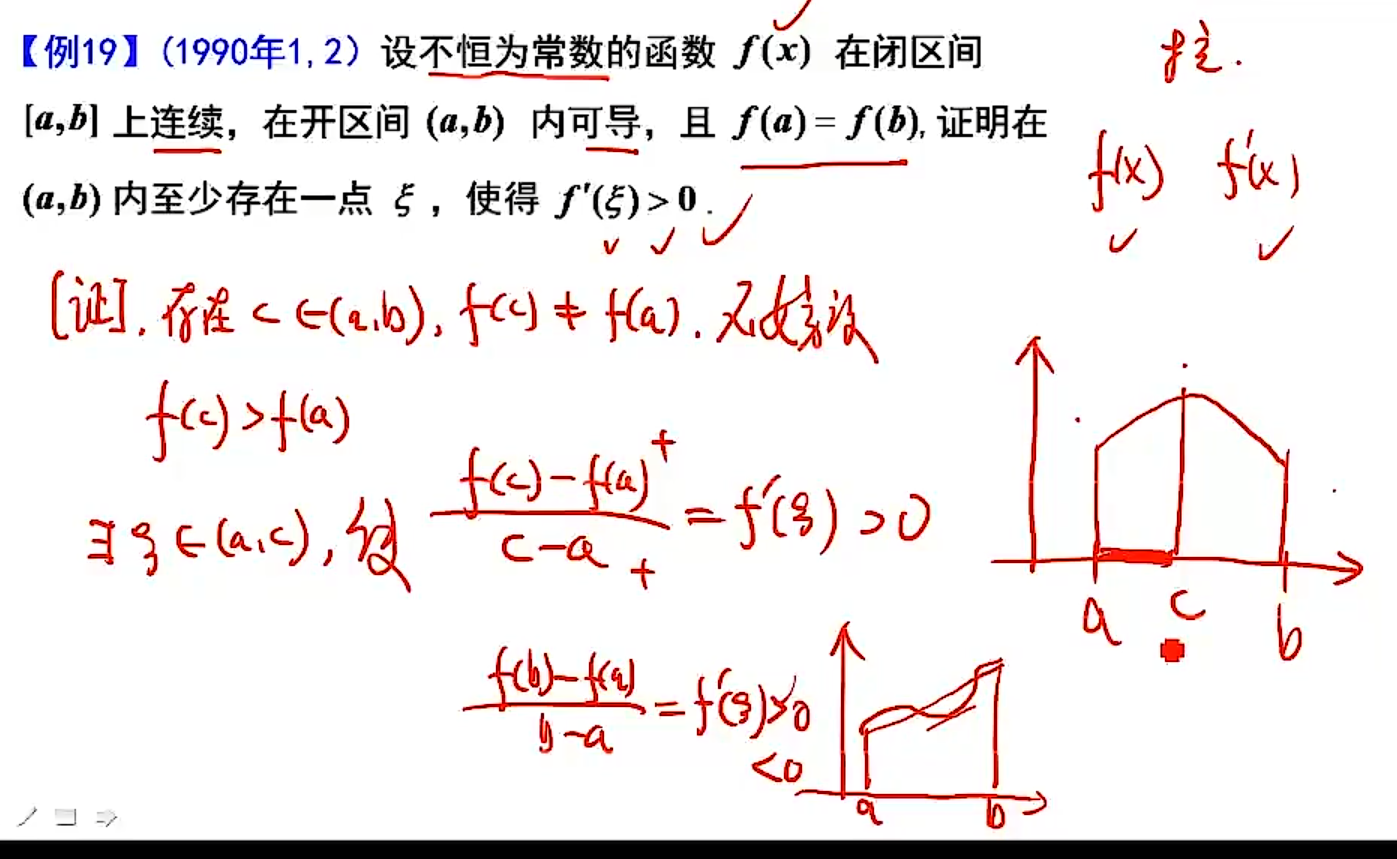 【例19】(1990年1,2) 设不恒为常数的函数 f(x) 在闭区间
[a,b] 上连续，在开区间 (a,b) 内可导，且 f(a) = f(b), 证明在
(a,b) 内至少存在一点 ξ ，使得 f′(ξ) > 0 .
f(x) f′(x)
[证]. 存在 c ∈ (a,b), f(c) ≠ f(a). 不妨设
f(c) > f(a)
∃ ξ ∈ (a,c), 使 (f(c) − f(a))/(c − a) = f′(ξ) > 0
+
+
a c b
(f(b) − f(a))/(b − a) = f′(ξ) > 0
< 0
a b